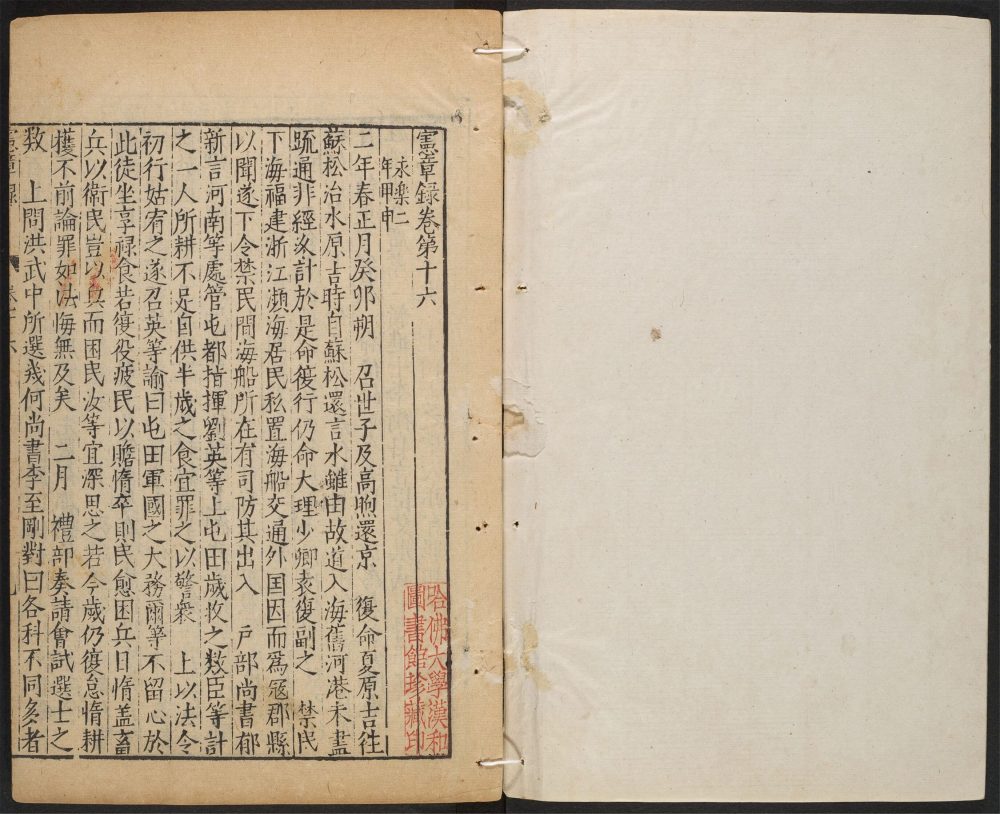 憲章録卷第十六
永樂二
年甲申
二年春正月癸卯朔　召世子及高煦還京　復命夏原吉往
蘇松治水原吉時自蘇松還言水雖由故道入海舊河港未盡
疏通非經乆計於是命復行仍命大理少卿袁復副之　禁民
下海福建浙江瀕海居民私置海船交通外国因而爲寇郡縣
以聞遂下令禁民間海船所在有司防其出入　戸部尚書郁
新言河南等處管屯都指揮劉英等上屯田歲收之数臣等計
之一人所耕不足自供半歲之食宜罪之以警衆　上以法令
初行姑宥之遂召英等諭曰屯田軍國之大務爾等不留心於
此徒坐享禄食若復役疲民以贍惰卒則民愈困兵日惰盖畜
兵以衛民豈以兵而困民汝等宜深思之若今歲仍復怠惰耕
穫不前論罪如法悔無及矣　二月　禮部奏請會試選士之
数　上問洪武中所選幾何尚書李至剛對曰各科不同多者
憲章録
卷十六
哈佛大學漢和
圖書館珍藏印